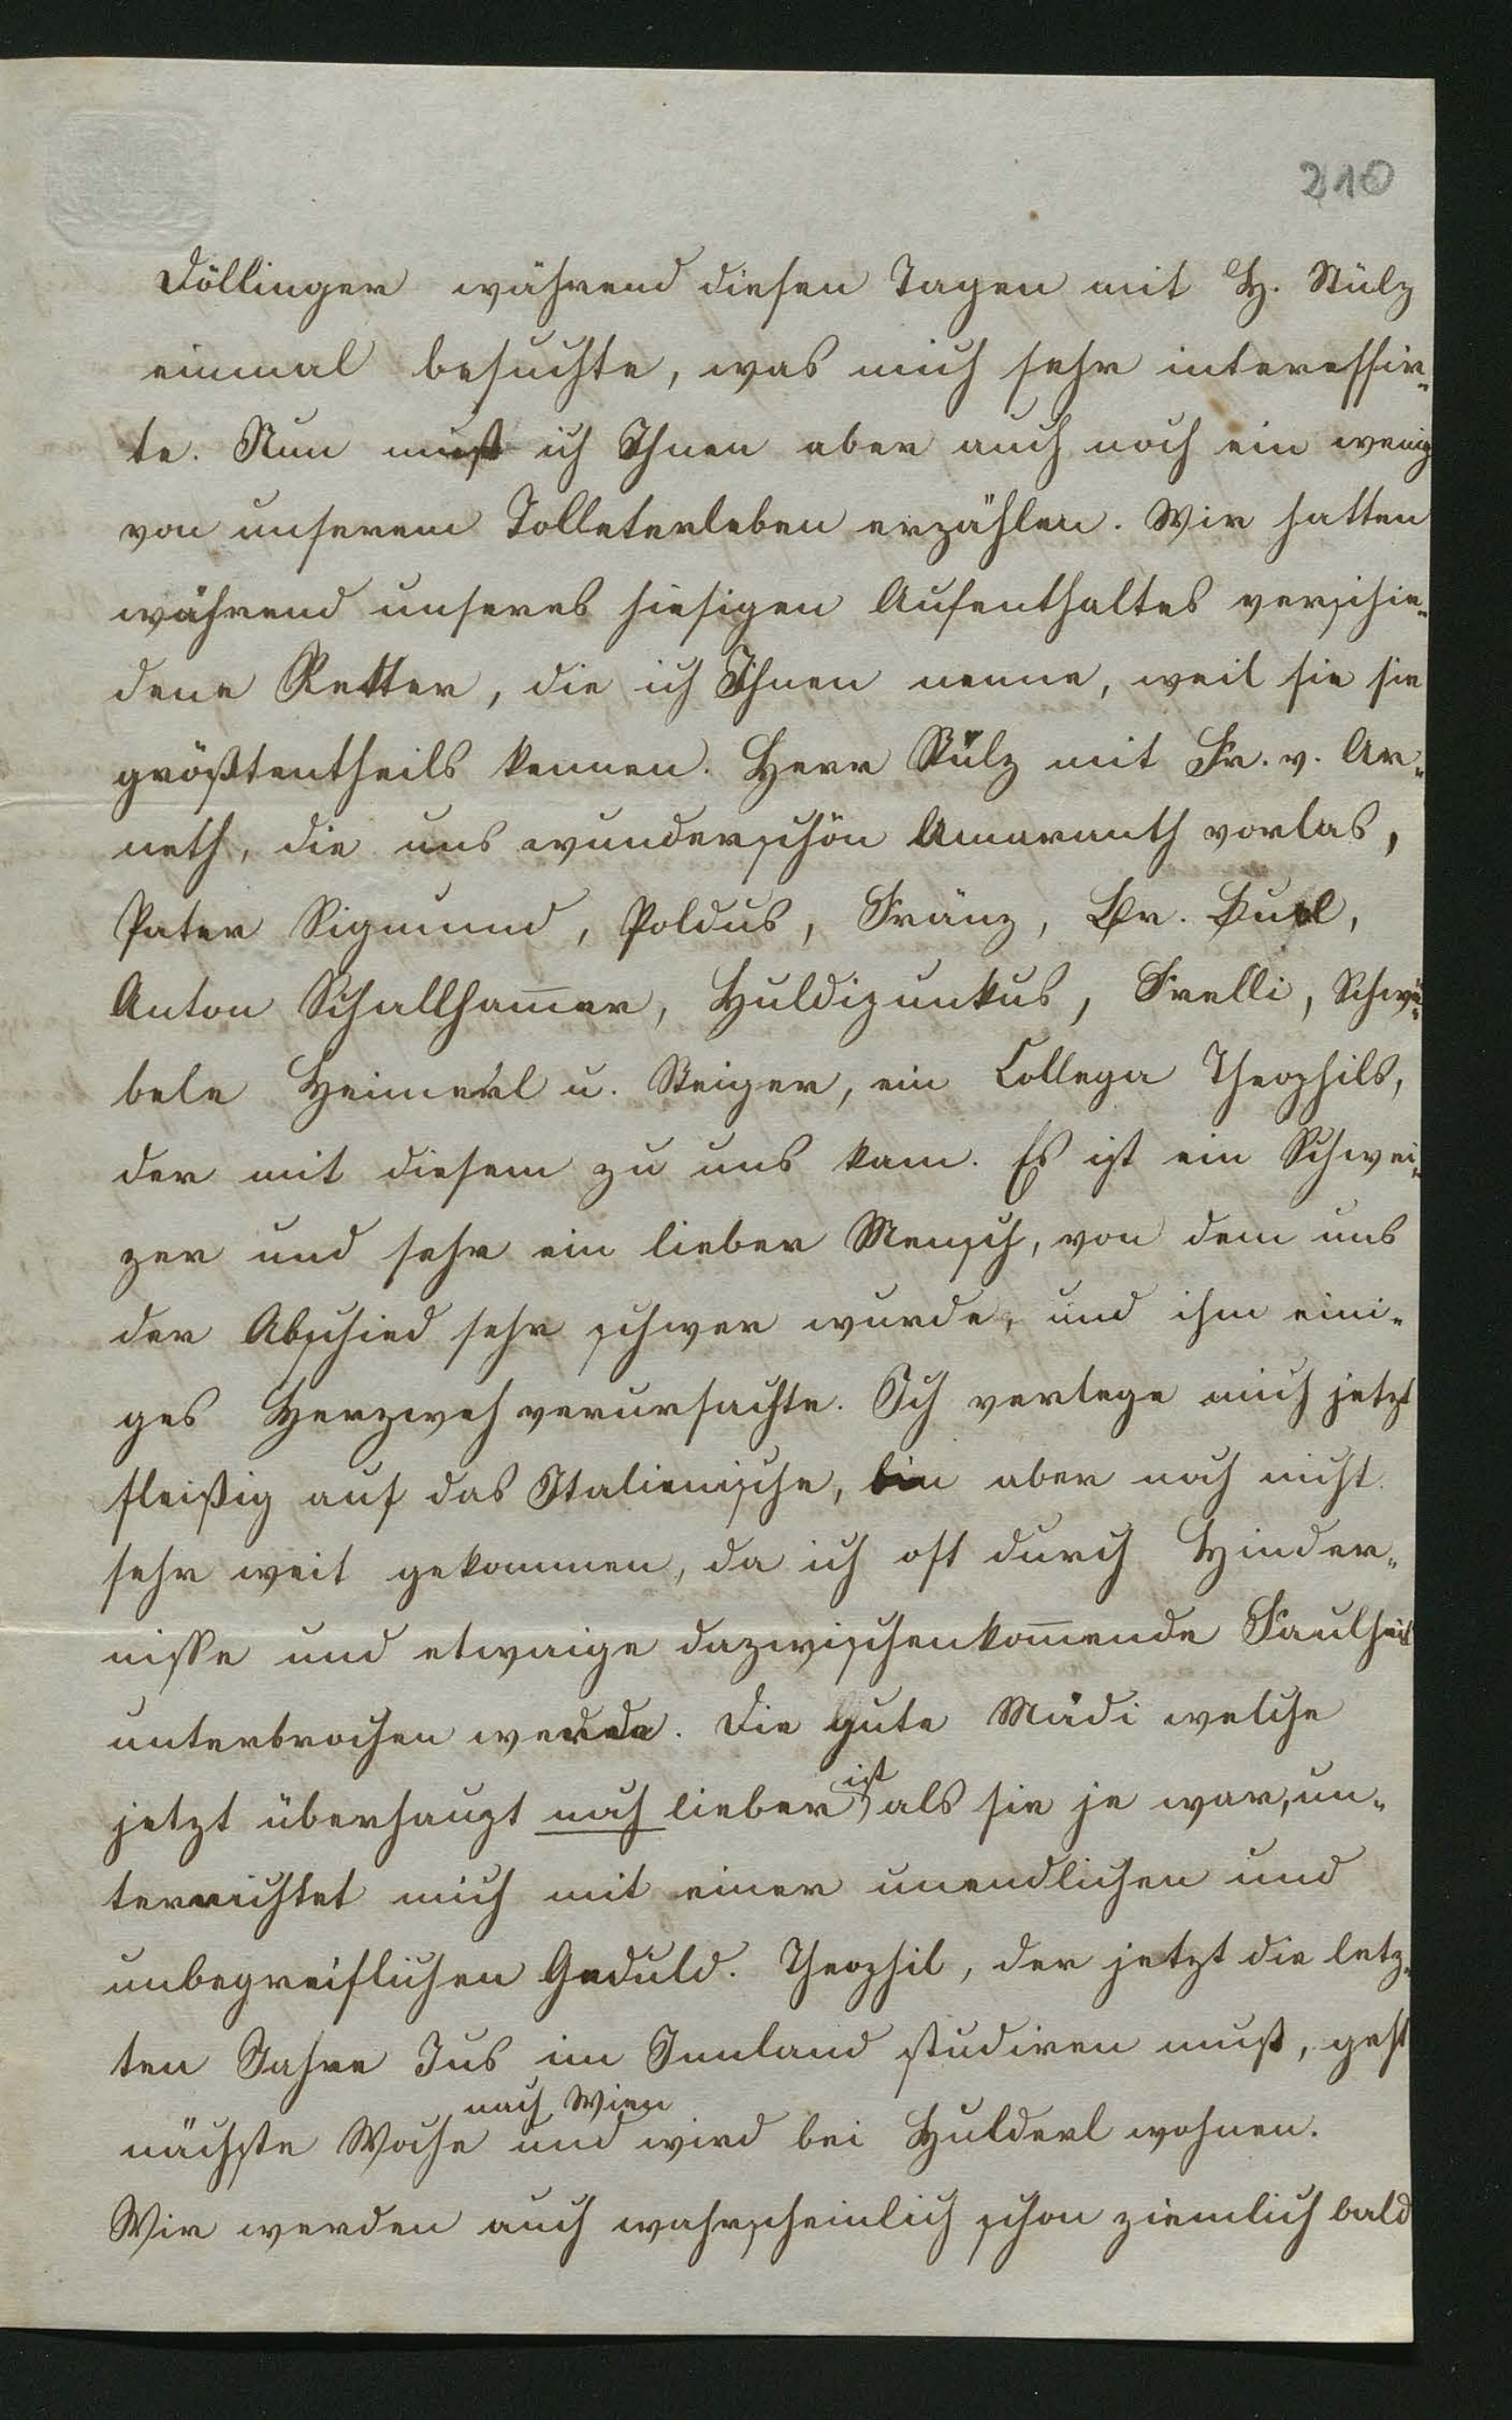 210
Döllinger während diesen Tagen mit H. Stülz
einmal besuchte, was mich sehr interessir-
te. Nun muß ich Ihnen aber auch noch ein wenig
von unserem Tolleterleben erzählen. Wir hatten
während unseres hiesigen Aufenthaltes verschie-
dene Retter, die ich Ihnen nenne, weil sie sie
größtentheils kennen. Herr Stülz mit Fr. v. Ar-
neth, die uns wunderschön Amaranth vorlas,
Pater Sigmund, Poldus, Fränz,
Anton Schallham̅er, Huldizunkus, Frelli, Schwä-
bele Heimerl u. Steiger, ein Collega Theophils,
der mit diesem zu uns kam. Es ist ein Schwei-
zer und sehr ein lieber Mensch, von dem uns
der Abschied sehr schwer wurde, und ihm eini-
ges Herzweh verursachte. Ich verlege mich jetzt
fleißig auf das Italienische, bin aber noch nicht
sehr weit gekommen, da ich oft durch Hinder-
nisse und etwaige dazwischenkom̅ende Faulheit
unterbrochen werde. Die gute Mädi welche
jetzt überhaupt noch lieber ist als sie je war, un-
terrichtet mich mit einer unendlichen und
unbegreiflichen Geduld. Theophil, der jetzt die letz-
ten Jahre Jus im Innland studiren muß, geht
nächste Woche nach Wien und wird bei Hulderl wohnen.
Wir werden auch wahrscheinlich schon ziemlich bald